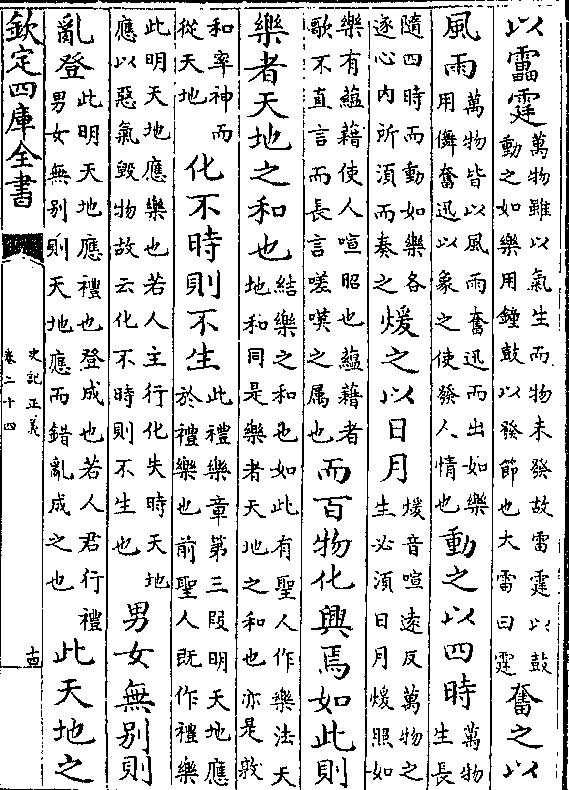 以靁霆萬物雖以氣生而物未發故雷霆以鼓動之如樂用鍾鼓以發節也大雷曰霆奮之以
風雨萬物皆以風雨奮迅而出如樂用儛奮迅以象之使發人情也動之以四時萬物生長
隨四時而動如樂各逐心內所須而奏之煖之以日月煖音喧遠反萬物之生必須日月煖照如
樂有蘊藉使人喧昭也蘊藉者歌不直言而長言嗟嘆之属也而百物化興焉如此則
樂者天地之和也結樂之和也如此有聖人作樂法天地和同是樂者天地之和也亦是敦
和率神而從天地化不時則不生此禮樂章第三段明天地應於禮樂也前聖人既作禮樂
此明天地應樂也若人主行化失時天地應以惡氣毀物故云化不時則不生也男女無别則
亂登此明天地應禮也登成也若人君行禮男女無别則天地應而錯亂成之也此天地之
欽定四庫全書
史記正義
卷二十四
十四